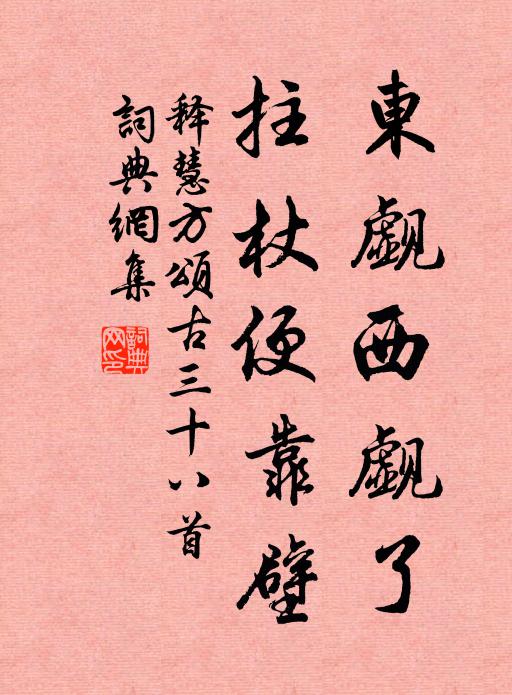 東覷西覷了
拄杖便靠壁
释慧方頌古三十八首
詞典網集
詞典網印